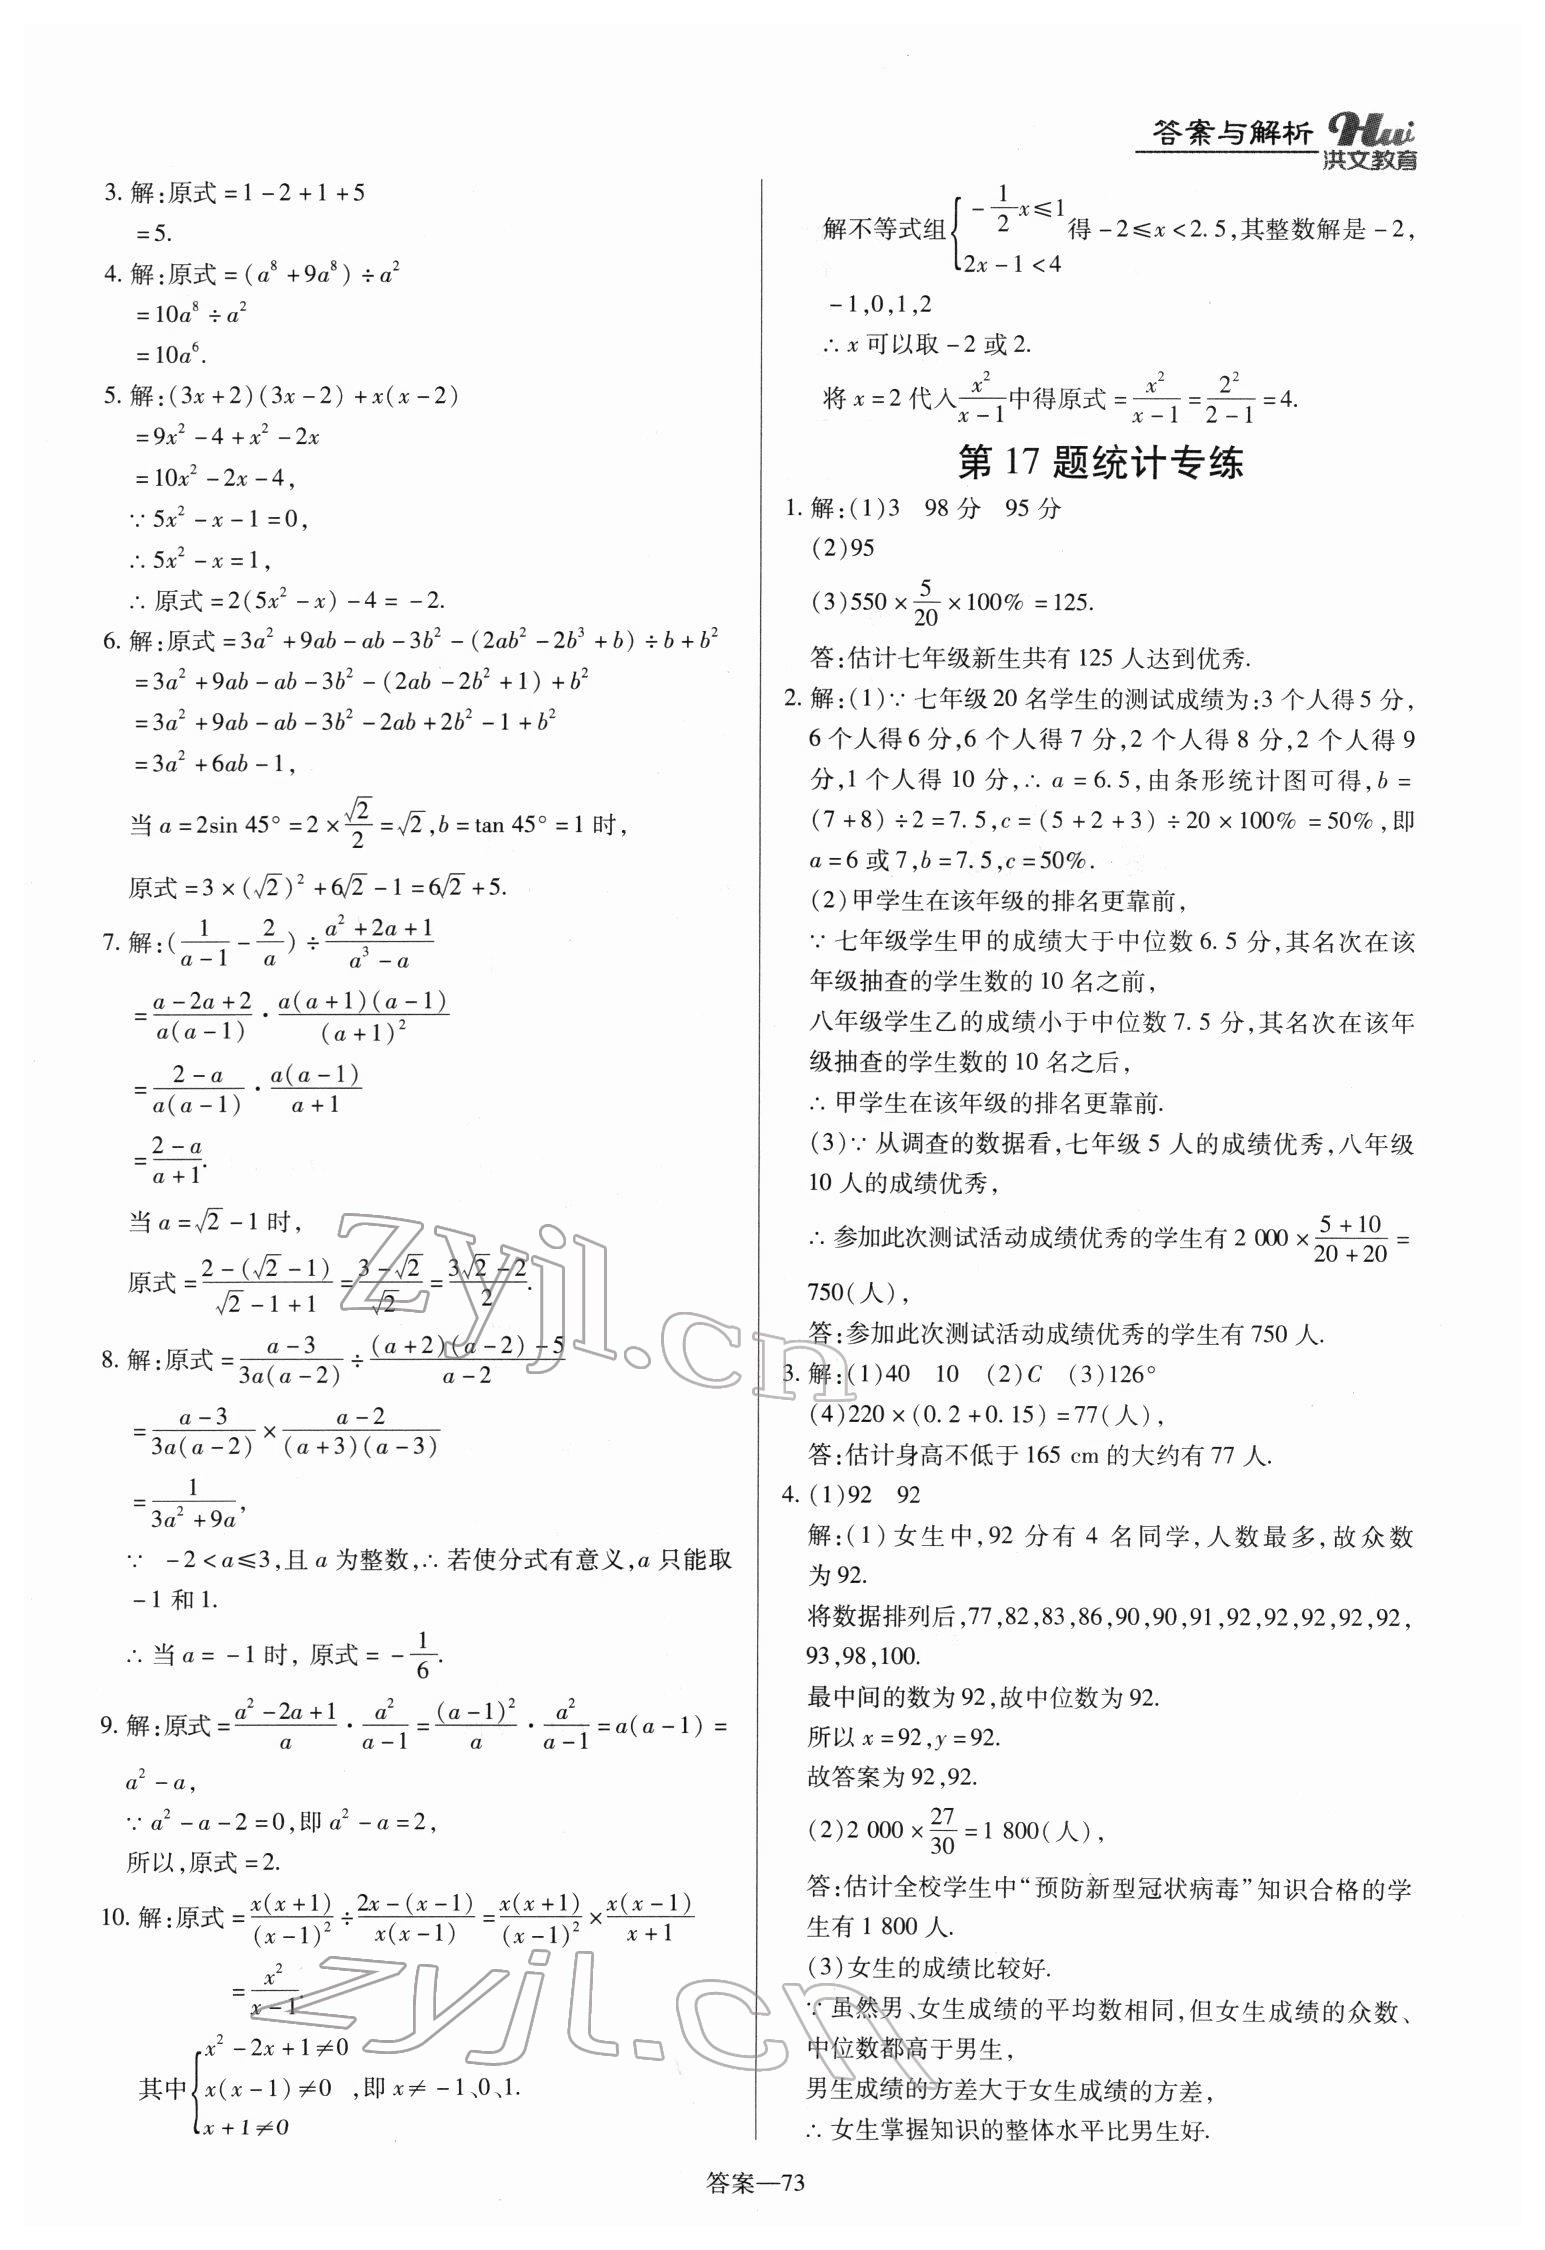 答案与解析 Hui 洪文教育
3. 解:原式=1-2+1+5
=5.
4. 解:原式=(a⁸+9a⁸)÷a²
=10a⁸÷a²
=10a⁶.
5. 解:(3x+2)(3x-2)+x(x-2)
=9x²-4+x²-2x
=10x²-2x-4,
∵5x²-x-1=0,
∴5x²-x=1,
∴原式=2(5x²-x)-4=-2.
6. 解:原式=3a²+9ab-ab-3b²-(2ab²-2b³+b)÷b+b²
=3a²+9ab-ab-3b²-(2ab-2b²+1)+b²
=3a²+9ab-ab-3b²-2ab+2b²-1+b²
=3a²+6ab-1,
当a=2sin 45°=2×√2/2=√2,b=tan 45°=1时,
原式=3×(√2)²+6√2-1=6√2+5.
7. 解:(1/(a-1)-2/a)÷(a²+2a+1)/(a³-a)
=(a-2a+2)/(a(a-1))·(a(a+1)(a-1))/((a+1)²)
=(2-a)/(a(a-1))·(a(a-1))/(a+1)
=(2-a)/(a+1).
当a=√2-1时,
原式=(2-(√2-1))/(√2-1+1)=(3-√2)/√2=(3√2-2)/2.
8. 解:原式=(a-3)/(3a(a-2))÷((a+2)(a-2)-5)/(a-2)
=(a-3)/(3a(a-2))×(a-2)/((a+3)(a-3))
=1/(3a²+9a),
∵ -2<a≤3,且a为整数,∴若使分式有意义,a只能取
-1和1.
∴当a=-1时,原式=-1/6.
9. 解:原式=(a²-2a+1)/a·a²/(a-1)=(a-1)²/a·a²/(a-1)=a(a-1)=
a²-a,
∵a²-a-2=0,即a²-a=2,
所以,原式=2.
10. 解:原式=x(x+1)/(x-1)²÷(2x-(x-1))/(x(x-1))=x(x+1)/(x-1)²×x(x-1)/(x+1)
=x²/(x-1).
其中{x²-2x+1≠0
x(x-1)≠0 ,即x≠-1、0、1.
x+1≠0
解不等式组{-1/2x≤1
2x-1<4 得-2≤x<2.5,其整数解是-2,
-1,0,1,2
∴x可以取-2或2.
将x=2代入x²/(x-1)中得原式=x²/(x-1)=2²/(2-1)=4.
第17题统计专练
1. 解:(1)3 98分 95分
(2)95
(3)550×5/20×100%=125.
答:估计七年级新生共有125人达到优秀.
2. 解:(1)∵七年级20名学生的测试成绩为:3个人得5分,
6个人得6分,6个人得7分,2个人得8分,2个人得9
分,1个人得10分,∴a=6.5,由条形统计图可得,b=
(7+8)÷2=7.5,c=(5+2+3)÷20×100%=50%,即
a=6或7,b=7.5,c=50%.
(2)甲学生在该年级的排名更靠前,
∵七年级学生甲的成绩大于中位数6.5分,其名次在该
年级抽查的学生数的10名之前,
八年级学生乙的成绩小于中位数7.5分,其名次在该年
级抽查的学生数的10名之后,
∴甲学生在该年级的排名更靠前.
(3)∵从调查的数据看,七年级5人的成绩优秀,八年级
10人的成绩优秀,
∴参加此次测试活动成绩优秀的学生有2 000×(5+10)/(20+20)=
750(人),
答:参加此次测试活动成绩优秀的学生有750人.
3. 解:(1)40 10 (2)C (3)126°
(4)220×(0.2+0.15)=77(人),
答:估计身高不低于165 cm的大约有77人.
4. (1)92 92
解:(1)女生中,92分有4名同学,人数最多,故众数
为92.
将数据排列后,77,82,83,86,90,90,91,92,92,92,92,92,
93,98,100.
最中间的数为92,故中位数为92.
所以x=92,y=92.
故答案为92,92.
(2)2 000×27/30=1 800(人),
答:估计全校学生中“预防新型冠状病毒”知识合格的学
生有1 800人.
(3)女生的成绩比较好.
∵虽然男、女生成绩的平均数相同,但女生成绩的众数、
中位数都高于男生,
男生成绩的方差大于女生成绩的方差,
∴女生掌握知识的整体水平比男生好.
答案—73
zyjl.cn
zyjl.cn